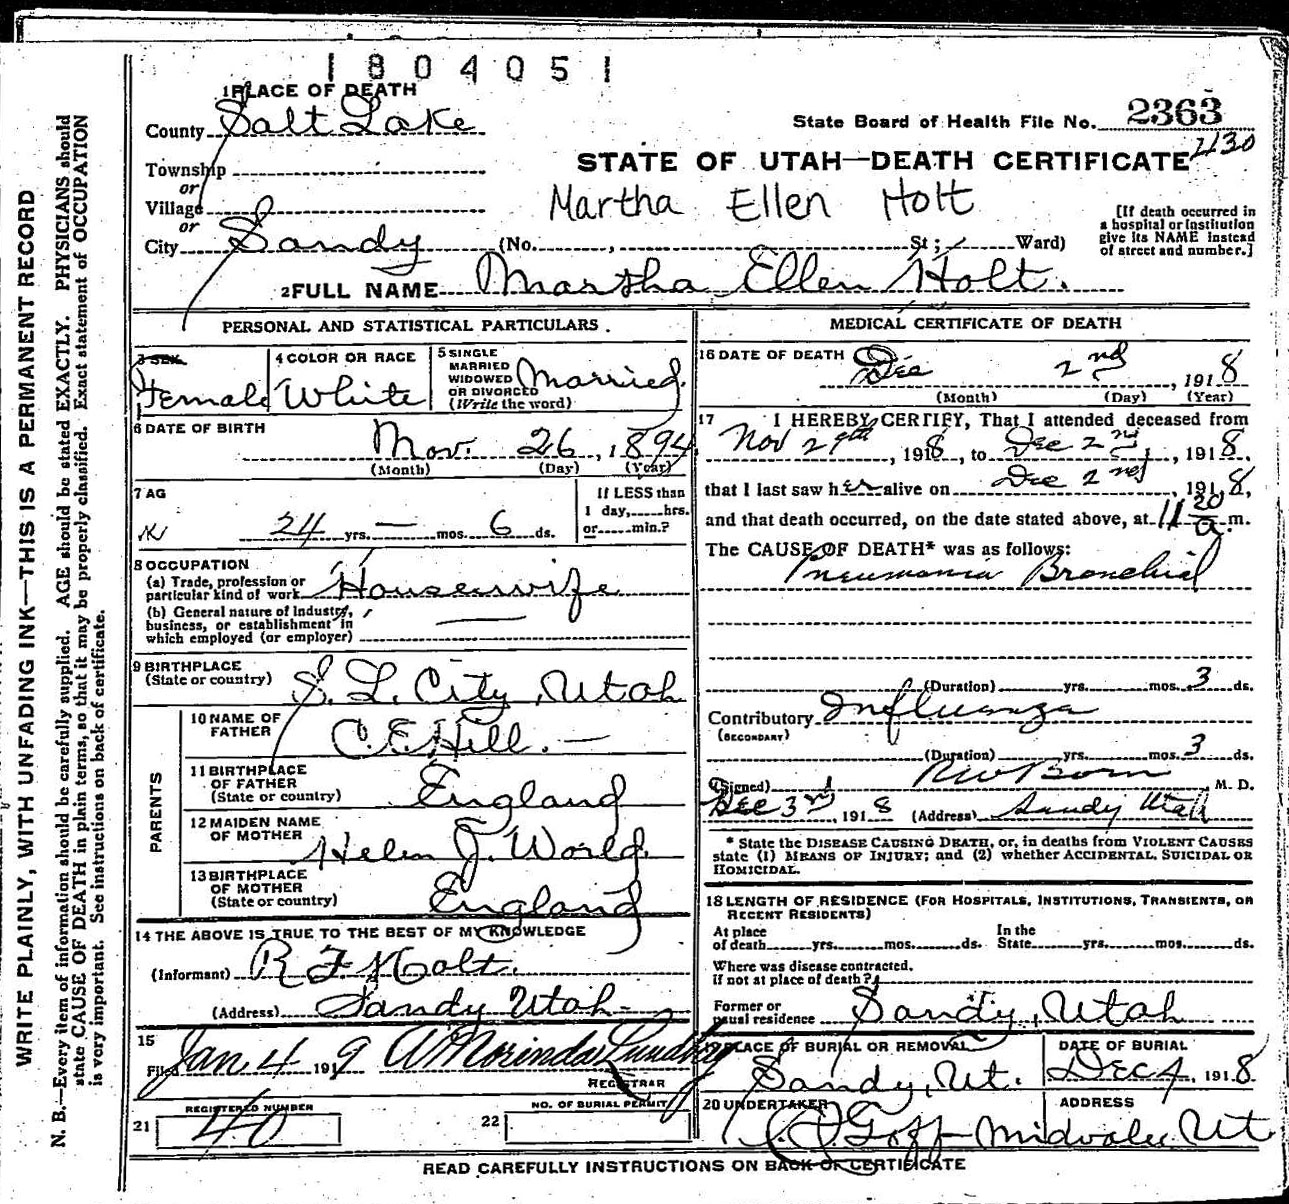 1804051
1 PLACE OF DEATH
County Salt Lake
State Board of Health File No. 2363
Township
or
STATE OF UTAH—DEATH CERTIFICATE 430
Village
or
Martha Ellen Holt
[If death occurred in a hospital or institution give its NAME instead of street and number.]
City Sandy (No. , St; Ward)
2 FULL NAME Martha Ellen Holt.
PERSONAL AND STATISTICAL PARTICULARS.
3 SEX Female
4 COLOR OR RACE White
5 SINGLE MARRIED WIDOWED OR DIVORCED (Write the word) Married
6 DATE OF BIRTH
Nov. 26, 1894
(Month) (Day) (Year)
7 AG
24 yrs. — mos. 6 ds.
If LESS than 1 day, hrs. or min.?
8 OCCUPATION
(a) Trade, profession or particular kind of work Housewife
(b) General nature of Industry, business, or establishment in which employed (or employer)
9 BIRTHPLACE
(State or country) S. L. City, Utah
PARENTS
10 NAME OF FATHER C. E. Hill. —
11 BIRTHPLACE OF FATHER (State or country) England
12 MAIDEN NAME OF MOTHER Helen J. World.
13 BIRTHPLACE OF MOTHER (State or country) England
14 THE ABOVE IS TRUE TO THE BEST OF MY KNOWLEDGE
(Informant) R F Holt.
(Address) Sandy Utah
15
Filed Jan 4 1919 A Morinda Lundberg
REGISTRAR
REGISTERED NUMBER
21 40
NO. OF BURIAL PERMIT
22
MEDICAL CERTIFICATE OF DEATH
16 DATE OF DEATH Dec 2nd, 1918
(Month) (Day) (Year)
17 I HEREBY CERTIFY, That I attended deceased from
Nov 29th, 1918, to Dec 2nd, 1918,
that I last saw her alive on Dec 2nd, 1918,
and that death occurred, on the date stated above, at 11 20 a m.
The CAUSE OF DEATH* was as follows:
Pneumonia Bronchial
(Duration) yrs. mos. 3 ds.
Contributory Influenza
(SECONDARY)
(Duration) yrs. mos. 3 ds.
(Signed) M. D.
Dec 3rd, 1918 (Address) Sandy Utah
* State the DISEASE CAUSING DEATH, or, in deaths from VIOLENT CAUSES
state (1) MEANS OF INJURY; and (2) whether ACCIDENTAL, SUICIDAL OR
HOMICIDAL.
18 LENGTH OF RESIDENCE (FOR HOSPITALS, INSTITUTIONS, TRANSIENTS, OR
RECENT RESIDENTS)
At place of death yrs. mos. ds. In the State yrs. mos. ds.
Where was disease contracted, if not at place of death?
Former or usual residence Sandy, Utah
19 PLACE OF BURIAL OR REMOVAL Sandy, Ut.
DATE OF BURIAL Dec 4, 1918
20 UNDERTAKER Goff
ADDRESS Midvale, Ut
READ CAREFULLY INSTRUCTIONS ON BACK OF CERTIFICATE
WRITE PLAINLY, WITH UNFADING INK—THIS IS A PERMANENT RECORD
N. B.—Every item of information should be carefully supplied. AGE should be stated EXACTLY. PHYSICIANS should
state CAUSE OF DEATH in plain terms, so that it may be properly classified. Exact statement of OCCUPATION
is very important. See instructions on back of certificate.